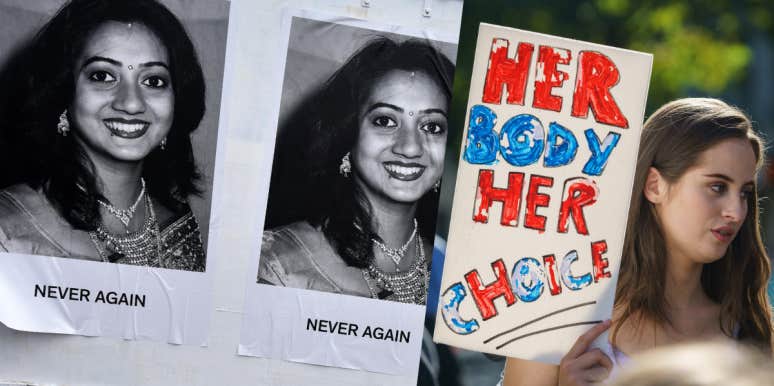 NEVER AGAIN
NEVER AGAIN
HER
BODY
HER
CHOICE